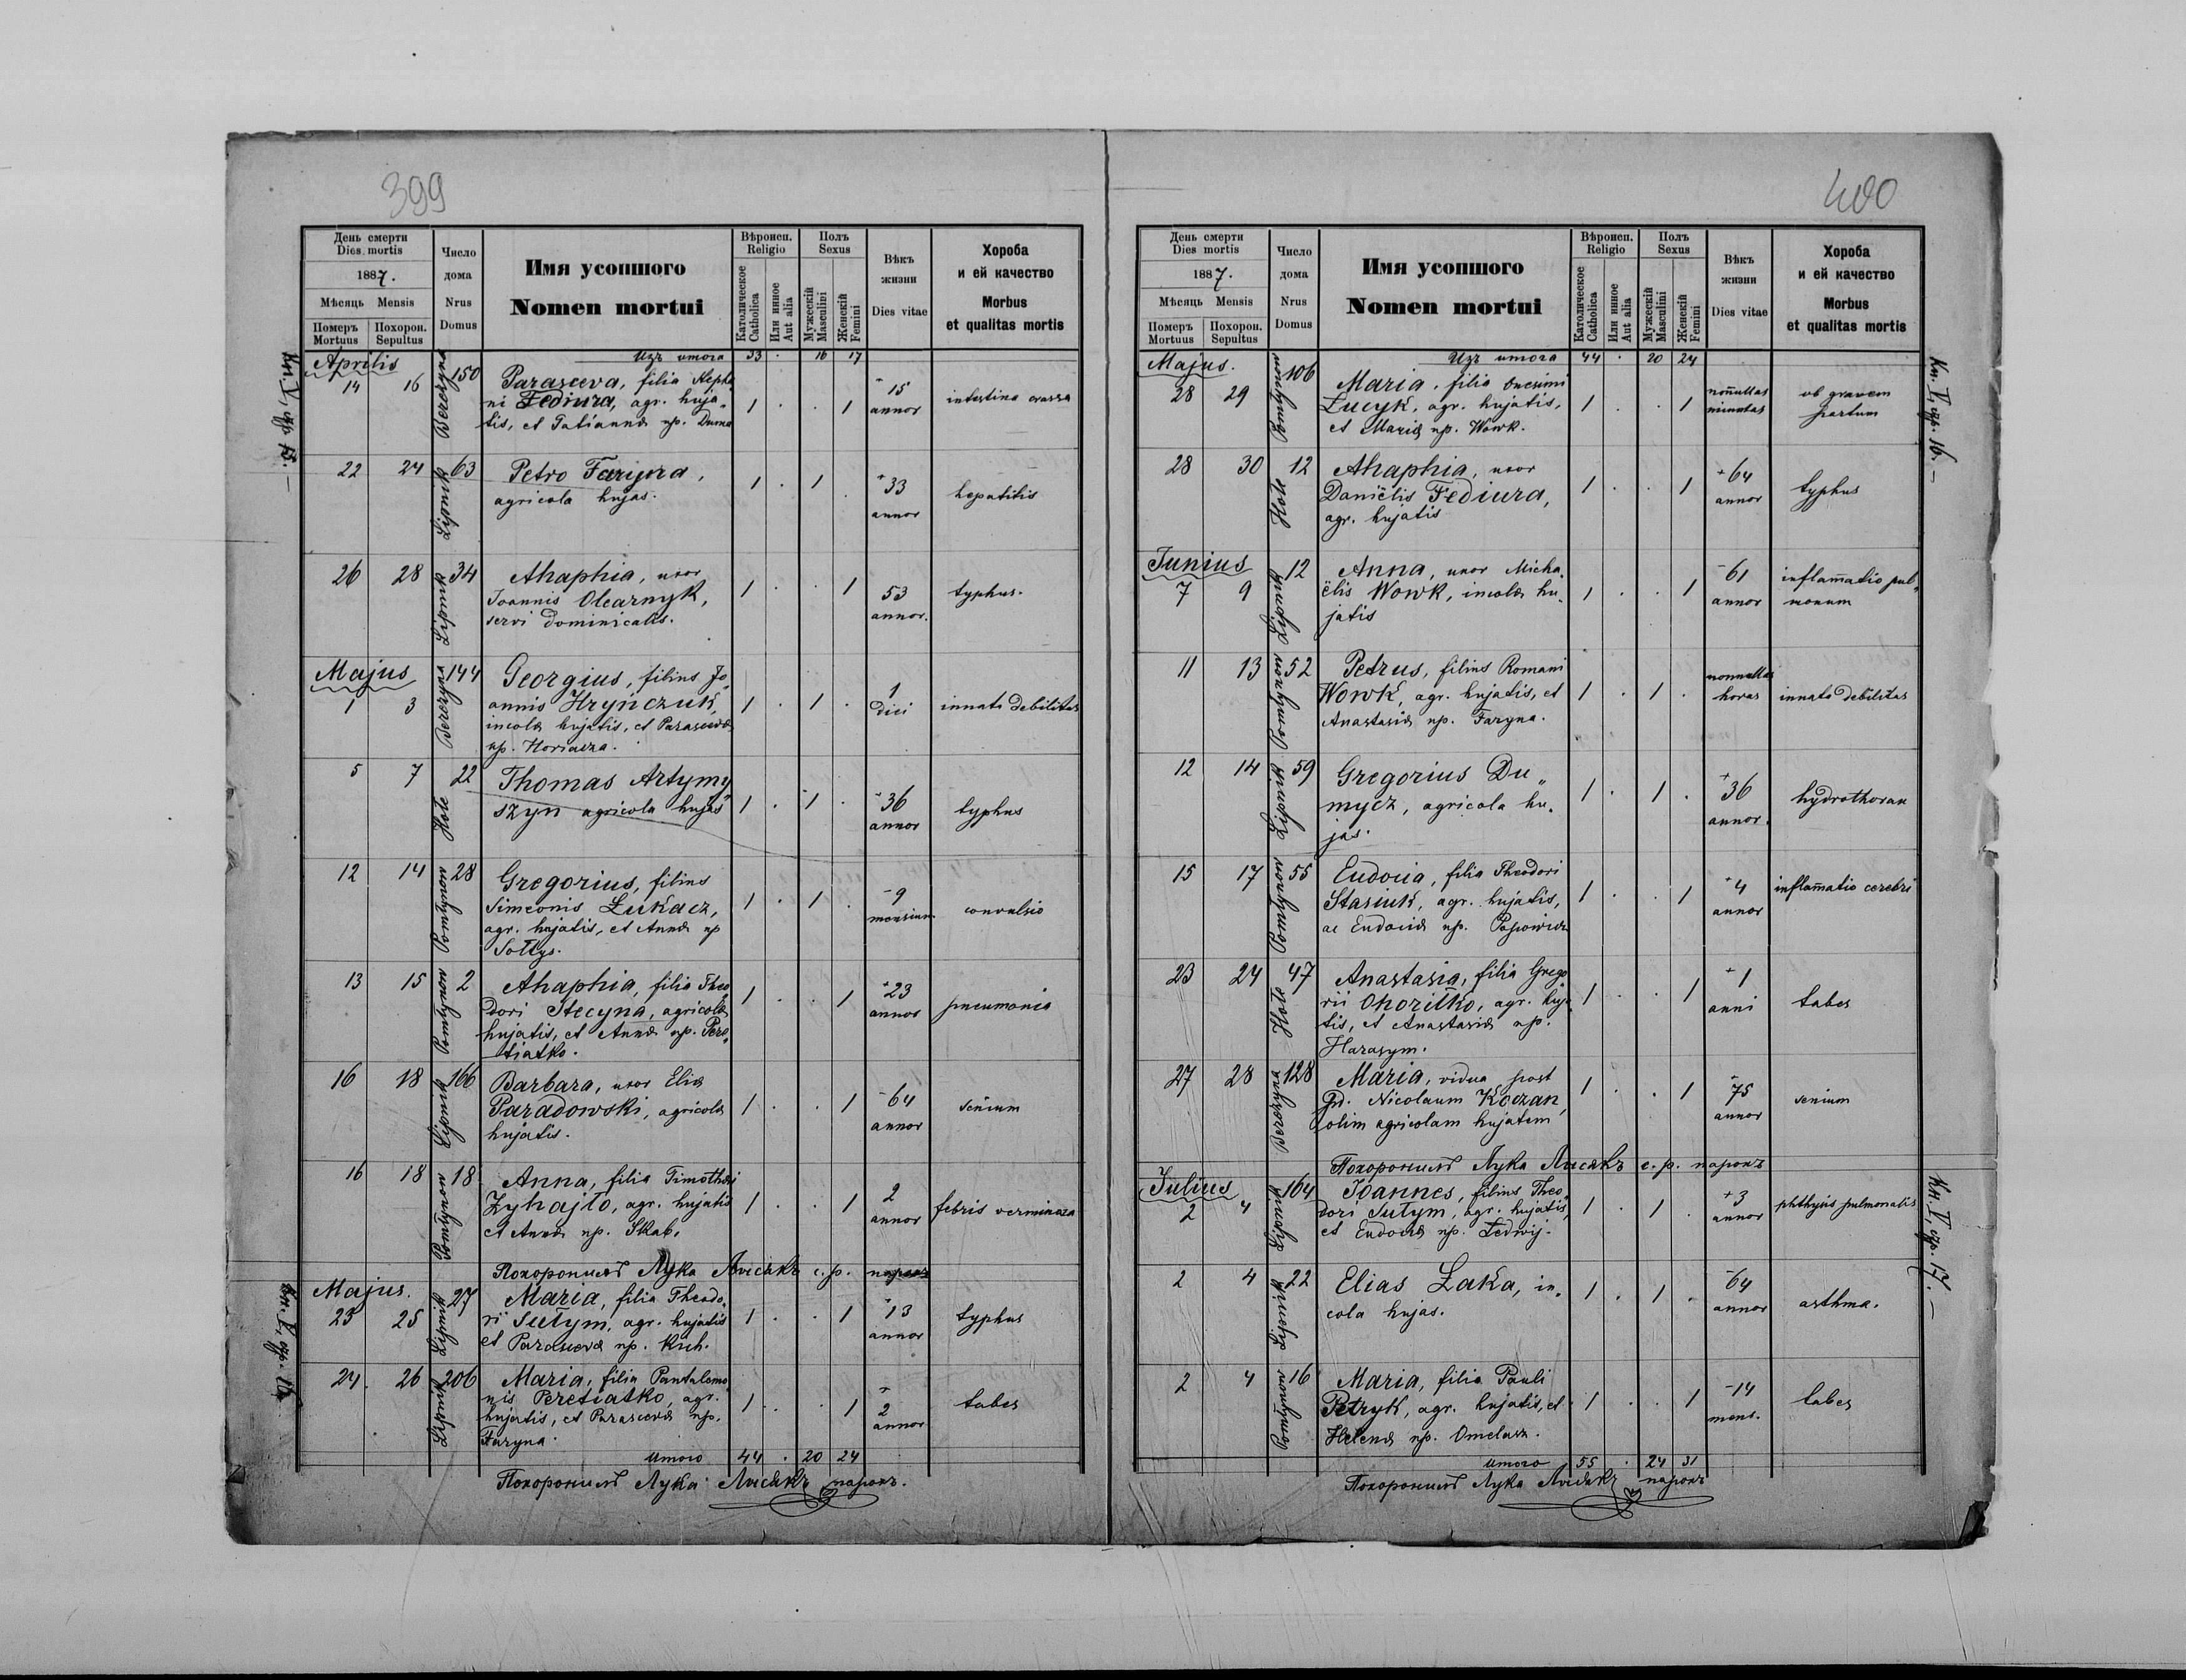 399
День смерти
Dies mortis
1887.
Мѣсяць Mensis
Померъ
Mortuus
Похорон.
Sepultus
Число
дома
Nrus
Domus
Имя усопшого
Nomen mortui
Вѣроисп.
Religio
Католическое
Catholica
Или инное
Aut alia
Полъ
Sexus
Мужескій
Masculini
Женскій
Femini
Вѣкъ
жизни
Dies vitae
Хороба
и ей качество
Morbus
et qualitas mortis
Кн. V, стр. 15. —
Изъ итога 33 . 16 17
Aprilis
14 16 Berezyna 150 Parasceva, filia Stepha
ni Fediura, agr. huja„
tis, et Tatianna np. Duma
1 . . 1 15 annor intestina crassa
22 24 Lipnik 63 Petro Faryna,
agricola hujas.
1 . 1 . 33 annor hepatitis
26 28 Lipnik 34 Ahaphia, uxor
Joannis Olearnyk,
servi dominicalis.
1 . . 1 53 annor. typhus.
Majus
1 3 Berezyna 144 Georgius, filius Jo„
annis Hryńczuk,
incolæ hujatis, et Parascevæ
np. Horiacza.
1 . 1 . 1 diei innata debilitas
5 7 Hole 22 Thomas Artymy„
szyn agricola hujas
1 . 1 . 36 annor typhus
12 14 Pomłynow 28 Gregorius, filius
Simeonis Łukacz,
agr. hujatis, et Annæ np
Sołtys.
1 . 1 . 9 mensium convulsio
13 15 Pomłynow 2 Ahaphia, filia Theo
dori Stecyna, agricolæ
hujatis, et Annæ np. Pere„
tiatko.
1 . . 1 23 annor pneumonia
16 18 Lipnik 166 Barbara, uxor Eliæ
Paradowski, agricolæ
hujatis.
1 . . 1 64 annor senium
16 18 Pomłynow 18 Anna, filia Timothei
Zyhajło, agr. hujatis
et Annæ np. Skab.
1 . . 1 2 annor febris verminoza
Похоронилъ Лука Лисакъ с. р. парохъ
Кн. V, стр. 16.
Majus.
23 25 Lipnik 27 Maria, filia Theodo„
ri Sutym, agr. hujatis
et Parascevæ np. Kuch.
1 . . 1 13 annor typhus
24. 26 Lipnik 206 Maria, filia Pantalemo
nis Peretiatko, agr.
hujatis, et Parascevæ np.
Faryna.
1 . . 1 2 annor tabes
Итого 44 . 20 24
Похоронилъ Лука Лисакъ парохъ.
400
День смерти
Dies mortis
1887.
Мѣсяць Mensis
Померъ
Mortuus
Похорон.
Sepultus
Число
дома
Nrus
Domus
Имя усопшого
Nomen mortui
Вѣроисп.
Religio
Католическое
Catholica
Или инное
Aut alia
Полъ
Sexus
Мужескій
Masculini
Женскій
Femini
Вѣкъ
жизни
Dies vitae
Хороба
и ей качество
Morbus
et qualitas mortis
Кн. V, стр. 16. —
Изъ итога 44 . 20 24
Majus.
28 29 Pomłynow 106 Maria, filia Onesimi
Łucyk, agr. hujatis,
et Mariæ np. Wowk.
1 . . 1 noñullas minutas ob gravem partum
28 30 Hole 12 Ahaphia, uxor
Daniëlis Fediura,
agr. hujatis
1 . . 1 64 annor typhus
Junius
7 9 Lipnik 12 Anna, uxor Micha„
ëlis Wowk, incolæ hu„
jatis
1 . . 1 61 annor inflam̄atio pul„
monum
11 13 Pomłynow 52 Petrus, filius Romani
Wowk, agr. hujatis, et
Anastasiæ np. Faryna.
1 . 1 . nonnullas horas innata debilitas
12 14 Lipnik 59 Gregorius Du„
mycz, agricola hu„
jas.
1 . 1 . 36 annor. hydrothorax
15 17 Pomłynow 55 Eudocia, filia Theodori
Stasiuk, agr. hujatis,
ac Eudociæ np. Popowicz
1 . . 1 4 annor inflam̄atio cerebri
23 24 Hole 47 Anastasia, filia Grego
rii Ohoriłko, agr. huja
tis, et Anastasiæ np.
Harasym.
1 . . 1 1 anni tabes
27 28 Berezyna 128 Maria, vidua post
Pd. Nicolaum Koczan,
olim agricolam hujatem
1 . . 1 75 annor senium
Похоронилъ Лука Лисакъ с. р. парохъ
Кн. V, стр. 17. —
Julius
2 4 Lipnik 164 Joannes, filius Theo„
dori Sutym, agr. hujatis,
et Eudociæ np. Fedwij.
1 . 1 . 3 annor phthysis pulmonalis
2 4 Lipnik 22 Elias Łaka, in„
cola hujas.
1 . 1 . 64 annor asthma.
2 4 Pomłynow 16 Maria, filia Pauli
Petryk, agr. hujatis, et
Helenæ np. Omelasz.
1 . . 1 14 mens. tabes
Итого 55 . 24 31
Похоронилъ Лука Лисакъ парохъ